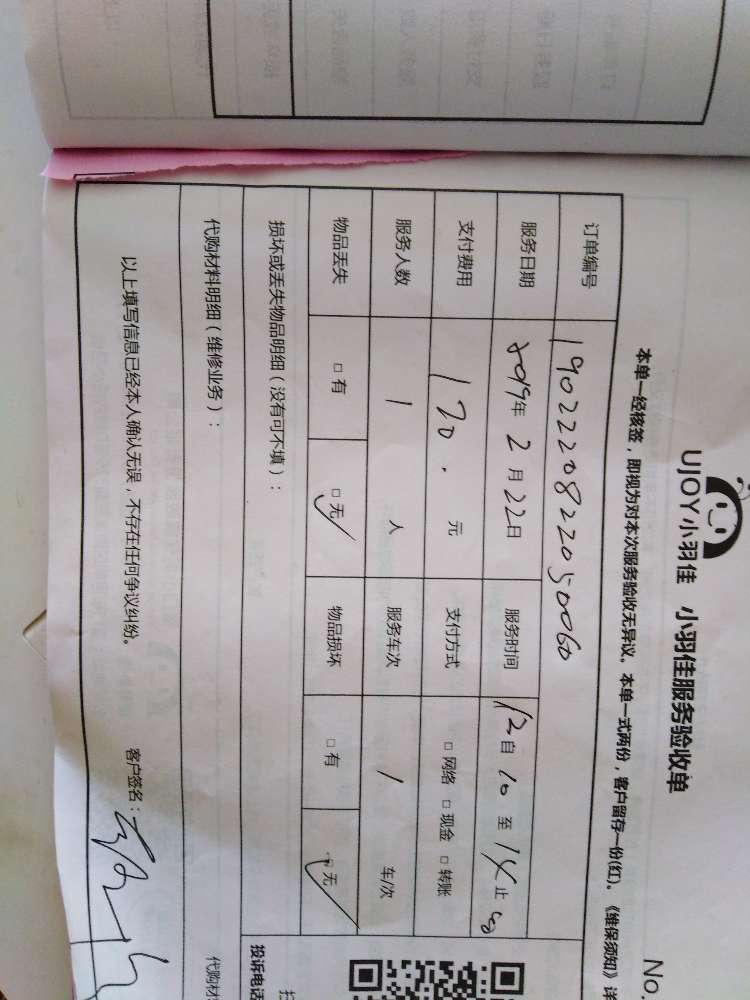 UJOY小羽佳 小羽佳服务验收单
No.
本单一经核签，即视为对本次服务验收无异议。本单一式两份，客户留存一份(红)。《维保须知》详
订单编号 1902220822050060
服务日期 2019年 2 月 22 日 服务时间 12 自 10 至 14 止
支付费用 120. 元 支付方式 □ 网络 □ 现金 □ 转账
服务人数 1 人 服务车次 1 车/次
物品丢失 □ 有 □ 无 物品损坏 □ 有 □ 无
损坏或丢失物品明细（没有可不填）：
投诉电话
代购材料明细（维修业务）：
代购材
以上填写信息已经本人确认无误，不存在任何争议纠纷。 客户签名：